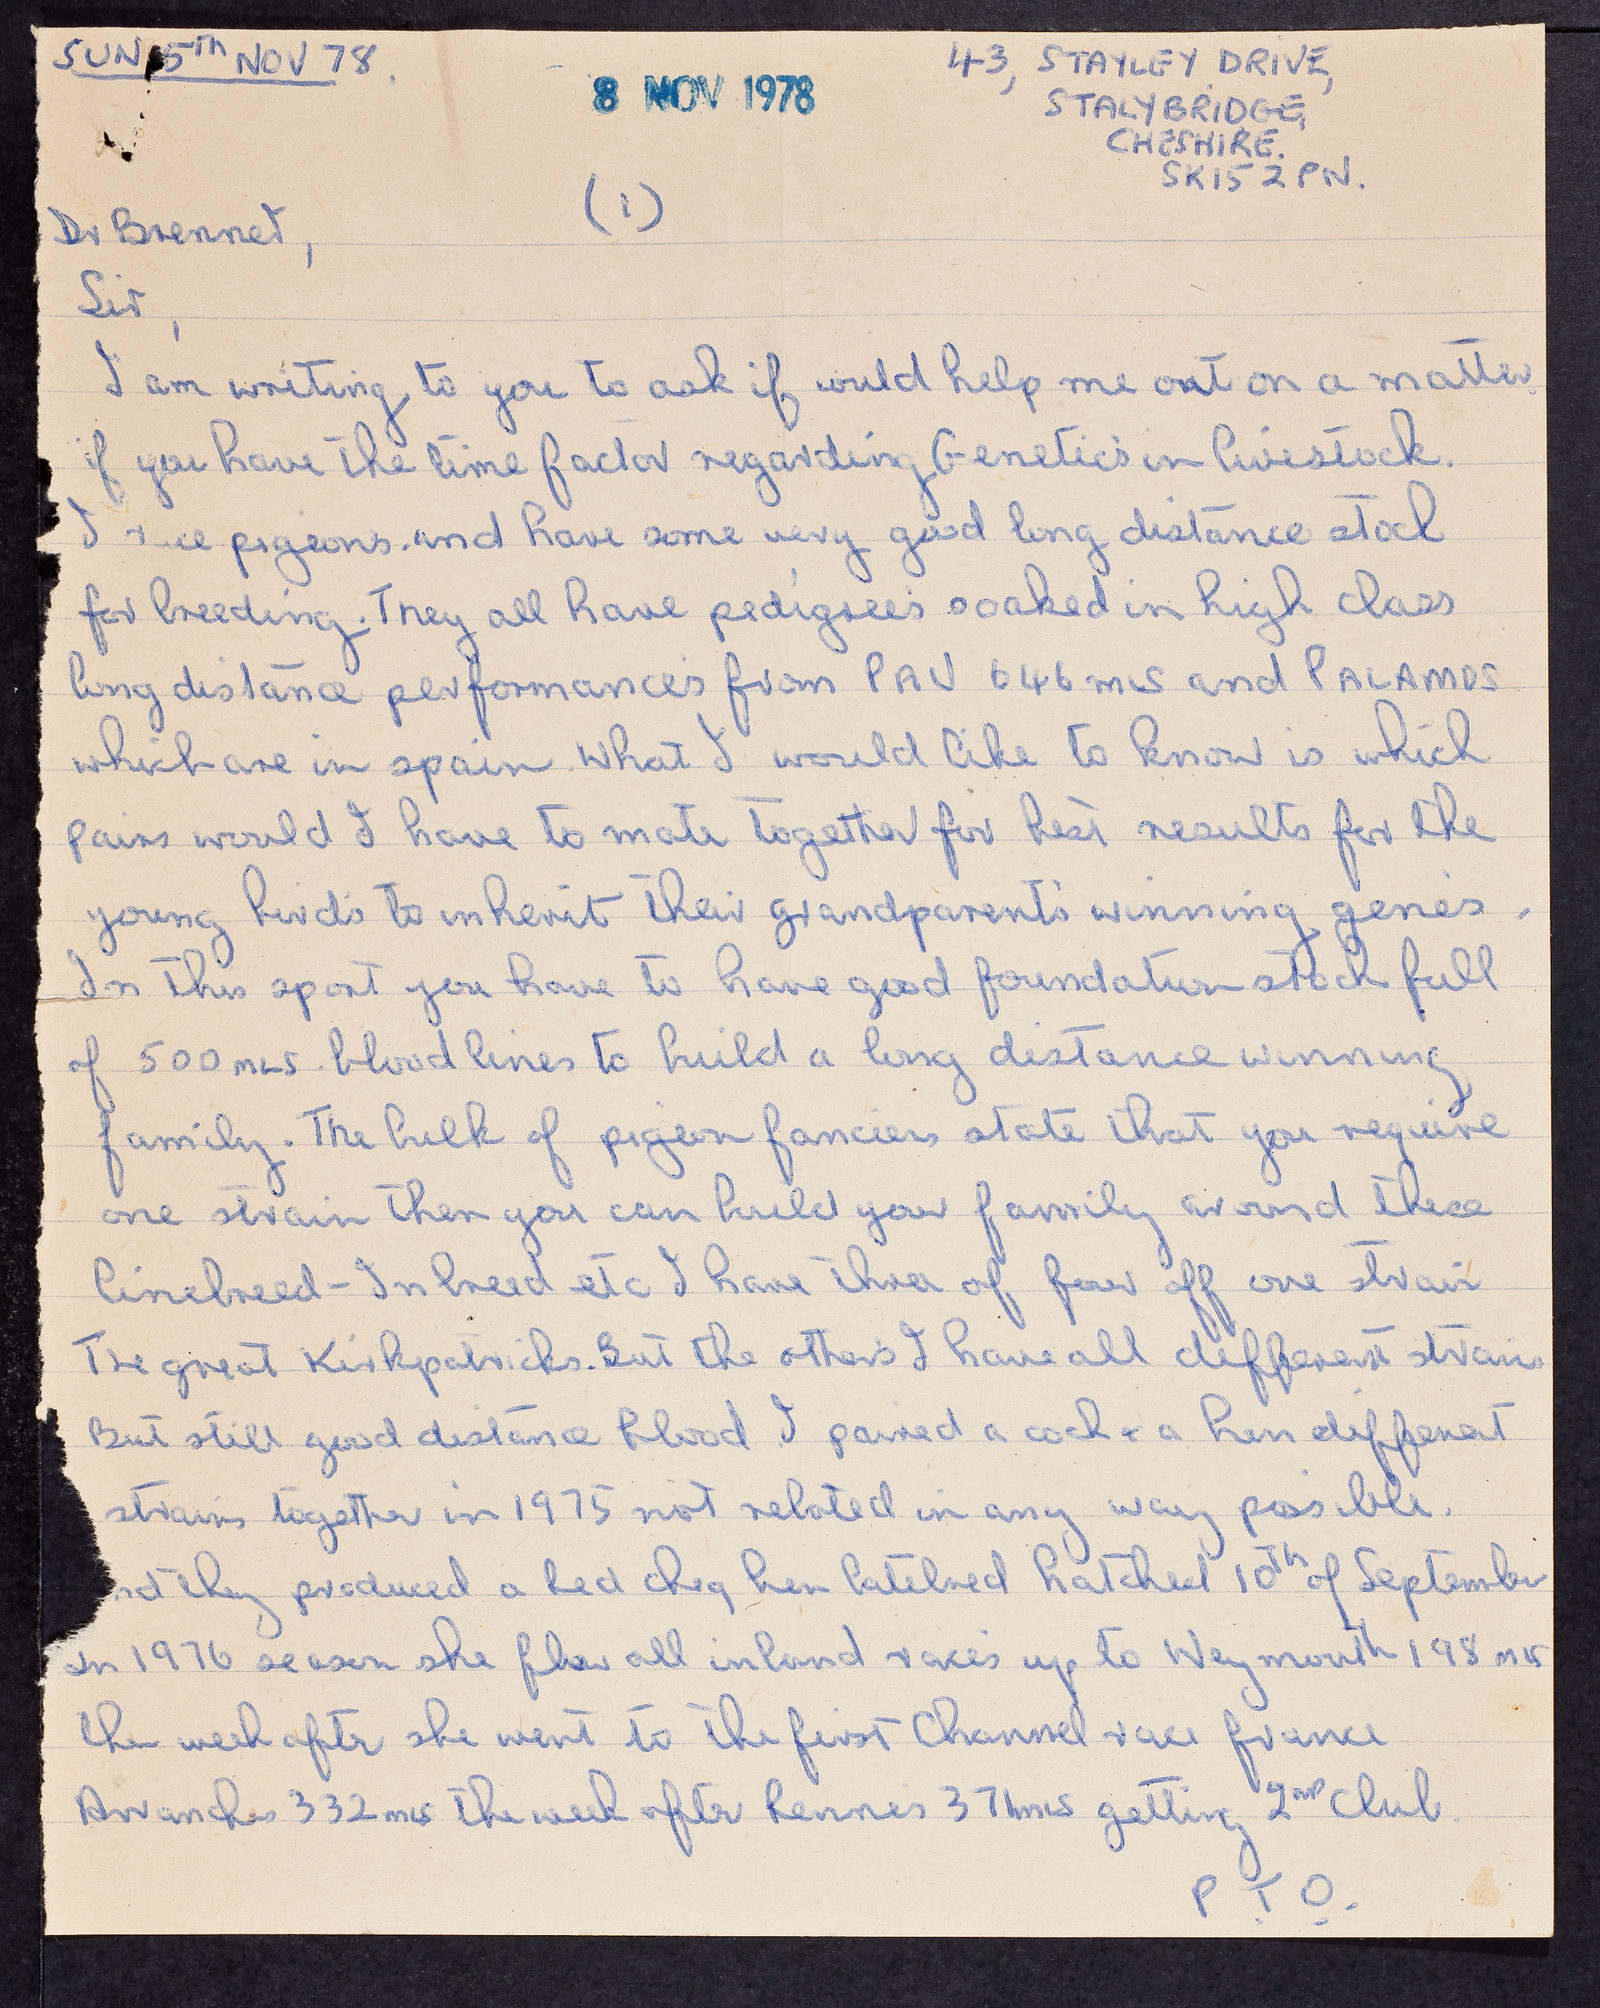 SUN 5th NOV 78.
8 NOV 1978
43, STAYLEY DRIVE,
STALYBRIDGE,
CHESHIRE.
SK15 2PN.
(1)
Dr Brennet,
Sir,
I am writing to you to ask if would help me out on a matter
if you have the time factor regarding Genetics in livestock.
I race pigeons. and have some very good long distance stock
for breeding. They all have pedigree's soaked in high class
long distance performances from PAU 646 mls and PALAMOS
which are in spain. What I would like to know is which
pairs would I have to mate together for best results for the
young bird's to inherit their grandparent's winning gene's.
In this sport you have to have good foundation stock full
of 500 mls. blood lines to build a long distance winning
family. The bulk of pigeon fanciers state that you require
one strain then you can build your family around these
linebreed - Inbreed etc I have three of four off one strain
The great Kirkpatricks. But the other's I have all different strains
But still good distance blood. I paired a cock & a hen different
strains together in 1975 not related in any way possible.
nd they produced a Red cheq hen latebred hatched 10th of September
In 1976 season she flew all inland race's up to Weymouth 198 mls
the week after she went to the first Channel race france
Avranches 332 mls the week after Rennes 371 mls getting 2nd Club.
P.T.O.